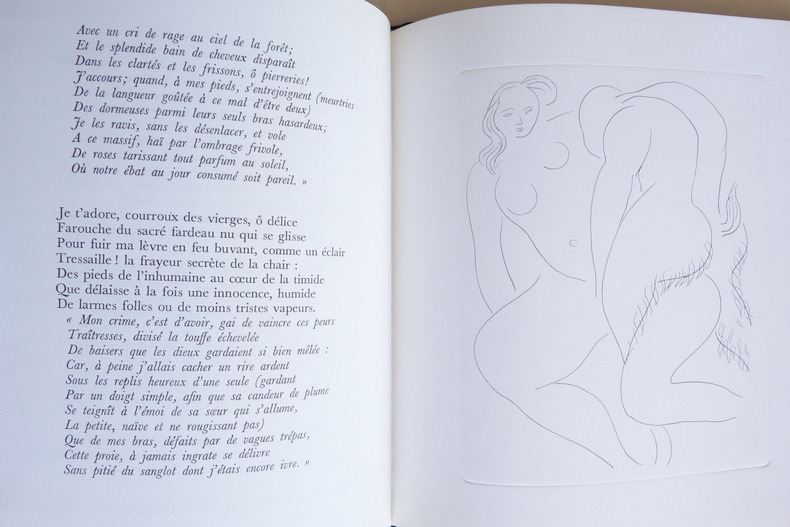 Avec un cri de rage au ciel de la forêt;
Et le splendide bain de cheveux disparaît
Dans les clartés et les frissons, ô pierreries!
J'accours; quand, à mes pieds, s'entrejoignent (meurtries
De la langueur goûtée à ce mal d'être deux)
Des dormeuses parmi leurs seuls bras hasardeux;
Je les ravis, sans les désenlacer, et vole
A ce massif, haï par l'ombrage frivole,
De roses tarissant tout parfum au soleil,
Où notre ébat au jour consumé soit pareil. »
Je t'adore, courroux des vierges, ô délice
Farouche du sacré fardeau nu qui se glisse
Pour fuir ma lèvre en feu buvant, comme un éclair
Tressaille ! la frayeur secrète de la chair :
Des pieds de l'inhumaine au cœur de la timide
Que délaisse à la fois une innocence, humide
De larmes folles ou de moins tristes vapeurs.
« Mon crime, c'est d'avoir, gai de vaincre ces peurs
Traîtresses, divisé la touffe échevelée
De baisers que les dieux gardaient si bien mêlée :
Car, à peine j'allais cacher un rire ardent
Sous les replis heureux d'une seule (gardant
Par un doigt simple, afin que sa candeur de plume
Se teignît à l'émoi de sa sœur qui s'allume,
La petite, naïve et ne rougissant pas)
Que de mes bras, défaits par de vagues trépas,
Cette proie, à jamais ingrate se délivre
Sans pitié du sanglot dont j'étais encore ivre. »